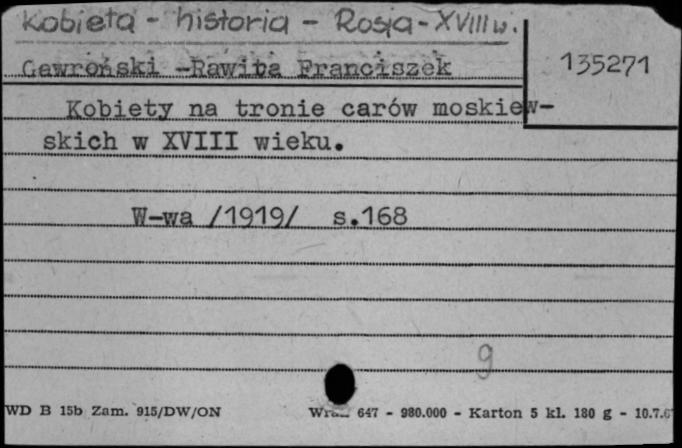 Kobieta - historia - Rosja - XVIII w.
135271
Gawroński -Rawita Franciszek
Kobiety na tronie carów moskiew-
skich w XVIII wieku.
W-wa /1919/ s.168
9
WD B 15b Zam. 915/DW/ON
647 - 980.000 - Karton 5 kl. 180 g - 10.7.